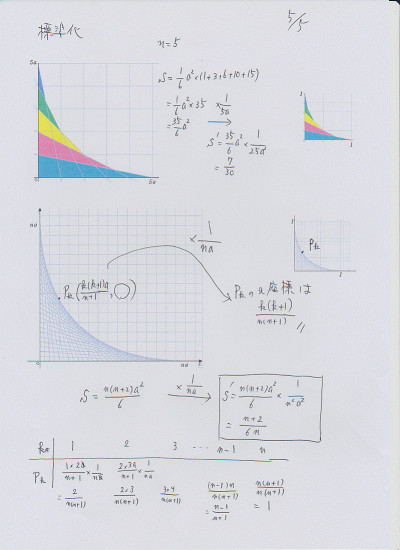 標準化
5/5
n=5
5a
S=1/6 a²×(1+3+6+10+15)
=1/6 a²×35 ×1/5a
=35/6 a² →
S'=35/6 a²×1/25a²
=7/30
0
5a
1
1
na
×1/na
P_k(k(k+1)a/n+1, ◯)
1
P_k
P_k の x座標は
k(k+1)/n(n+1) //
0
na
1
S=n(n+2)a²/6 ×1/na →
S'=n(n+2)a²/6 × 1/n²a²
=n+2/6n
k 1 2 3 … n-1 n
P_k 1×2a/n+1 ×1/na 2×3a/n+1 ×1/na
=2/n(n+1) 2×3/n(n+1) 3×4/n(n+1) (n-1)n/n(n+1) n(n+1)/n(n+1)
=n-1/n+1 =1